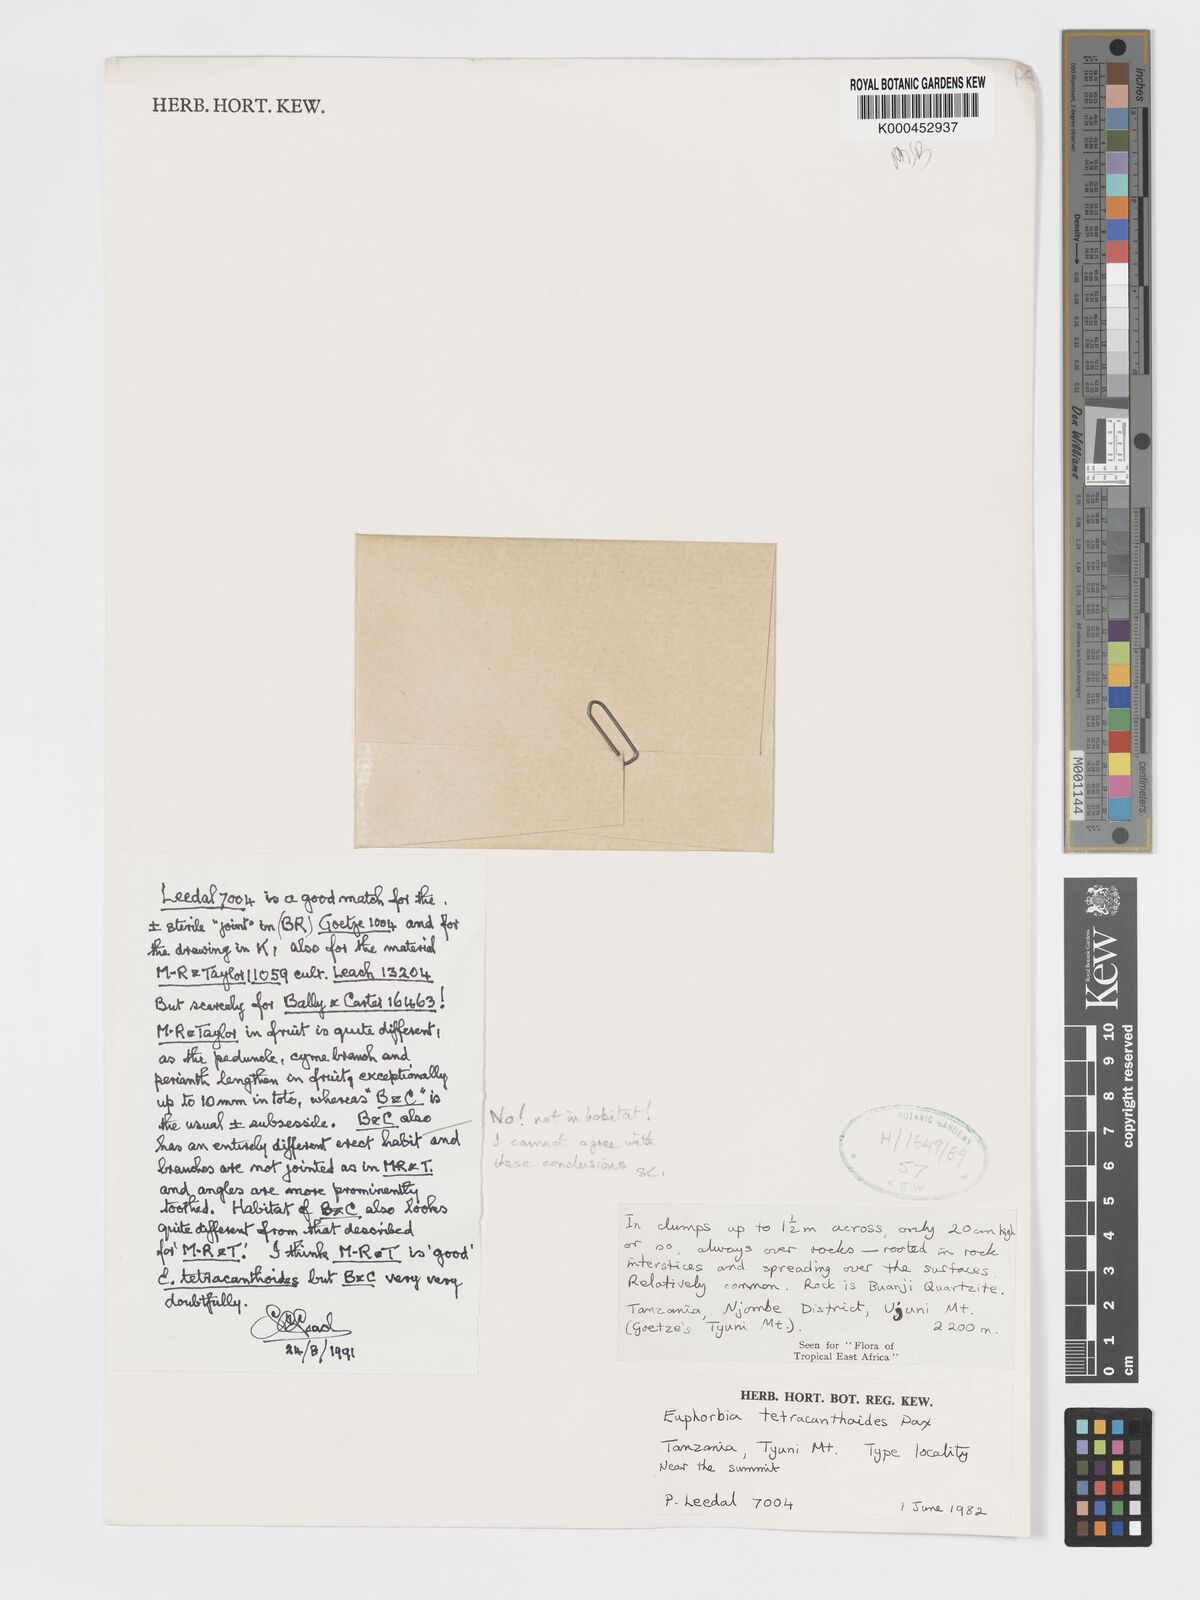 HERB. HORT. KEW.
ROYAL BOTANIC GARDENS KEW
K000452937
Leedal 7004 is a good match for the
± sterile "joint" in (BR) Goetze 1004 and for
the drawing in K, also for the material
M-R & Taylor 11059 cult. Leach 13204
But scarcely for Bally & Carter 16463!
M-R & Taylor in fruit is quite different,
as the peduncle, cyme branch and
perianth lengthen in fruit, exceptionally
up to 10mm in toto, whereas "B & C" is
the usual ± subsessile. B & C also
has an entirely different erect habit and
branches are not jointed as in M-R & T.
and angles are more prominently
toothed. Habitat of B & C also looks
quite different from that described
for M-R & T! I think M-R & T is 'good'
E. tetracanthoides but B & C very very
doubtfully.
24/8/1991
No! not in habitat!
I cannot agree with
these conclusions SC.
BOTANIC GARDENS
H/1649/89
57
KEW
In clumps up to 1½ m across, only 20cm high
or so, always over rocks — rooted in rock
interstices and spreading over the surfaces.
Relatively common. Rock is Buanji Quartzite.
Tanzania, Njombe District, Ujuni Mt.
(Goetze's Tyuni Mt.). 2200 m.
Seen for "Flora of
Tropical East Africa"
HERB. HORT. BOT. REG. KEW.
Euphorbia tetracanthoides Pax
Tanzania, Tyuni Mt. Type locality
Near the summit
P. Leedal 7004 1 June 1982
inches
Density
Don Williams
centimeters
M001144
Kew
Royal Botanic Gardens
copyright reserved
0 1 2 3 4 5 6 7 8 9 10
cm